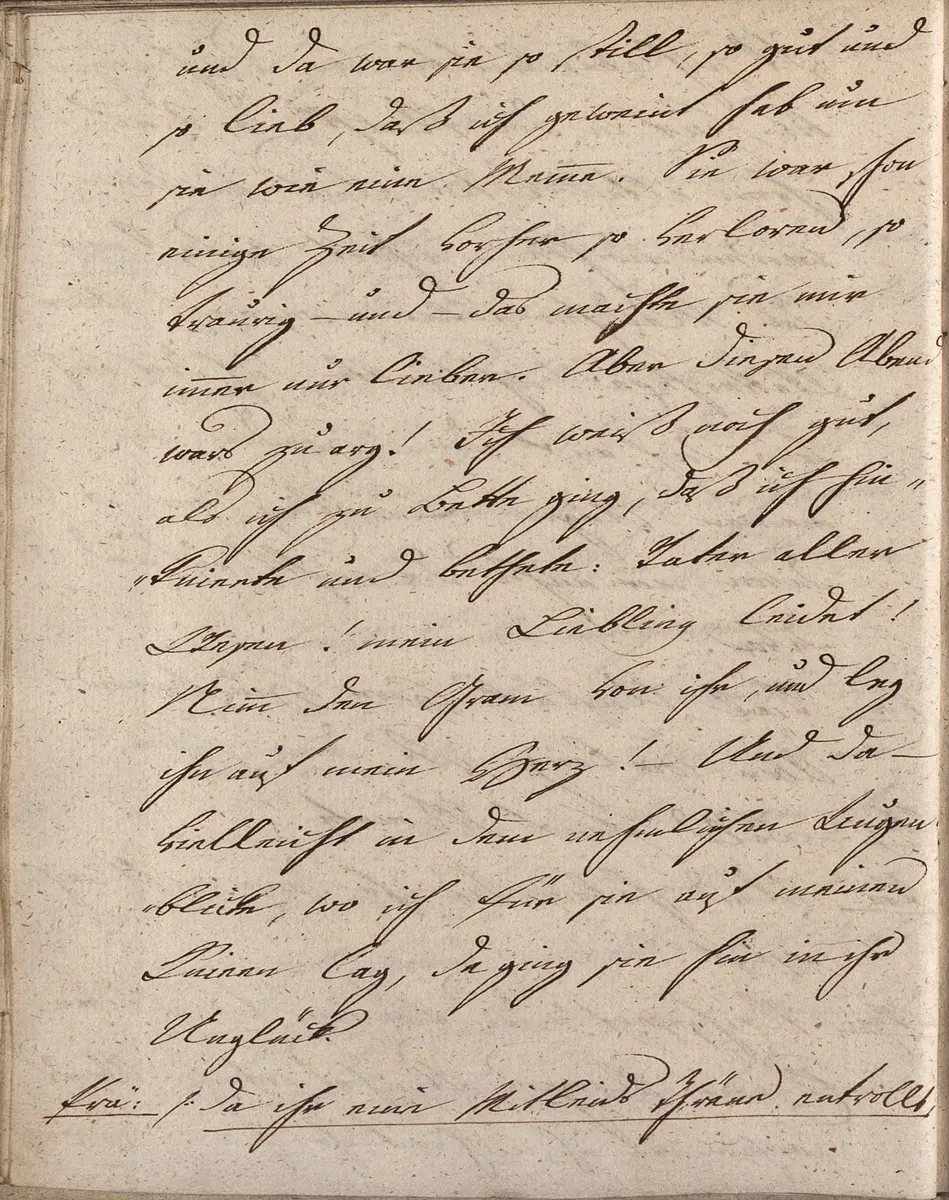 und da war sie so still, so gut und
so lieb, daß ich geweint hab um
sie wie eine Mem̅e. Sie war schon
einige Zeit vorher so verloren, so
traurig – und – das machte sie mir
im̅er nur lieber. Aber diesen Abend
wars zu arg! Ich weiß noch gut,
als ich zu Bette ging, daß ich hin„
„kniete und bethete: Vater aller
Wesen! mein Liebling leidet!
Nim̅ den Gram von ihr, und leg
ihn auf mein Herz! – Und da –
vielleicht in dem nehmlichen Augen
„blicke, wo ich für sie auf meinen
Knieen lag, da ging sie hin in ihr
Unglück.
Prä: /: da ihr eine Mitleids Thräne entrollt,